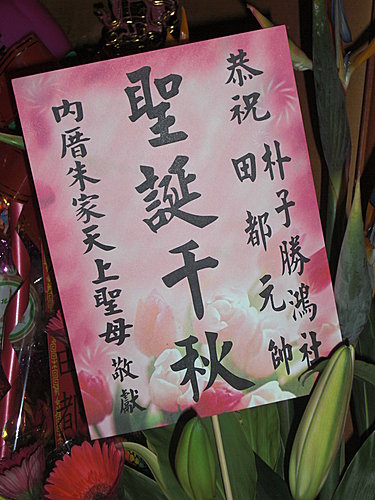 恭祝
朴子勝鴻社
田都元帥
聖誕千秋
內厝朱家天上聖母 敬獻